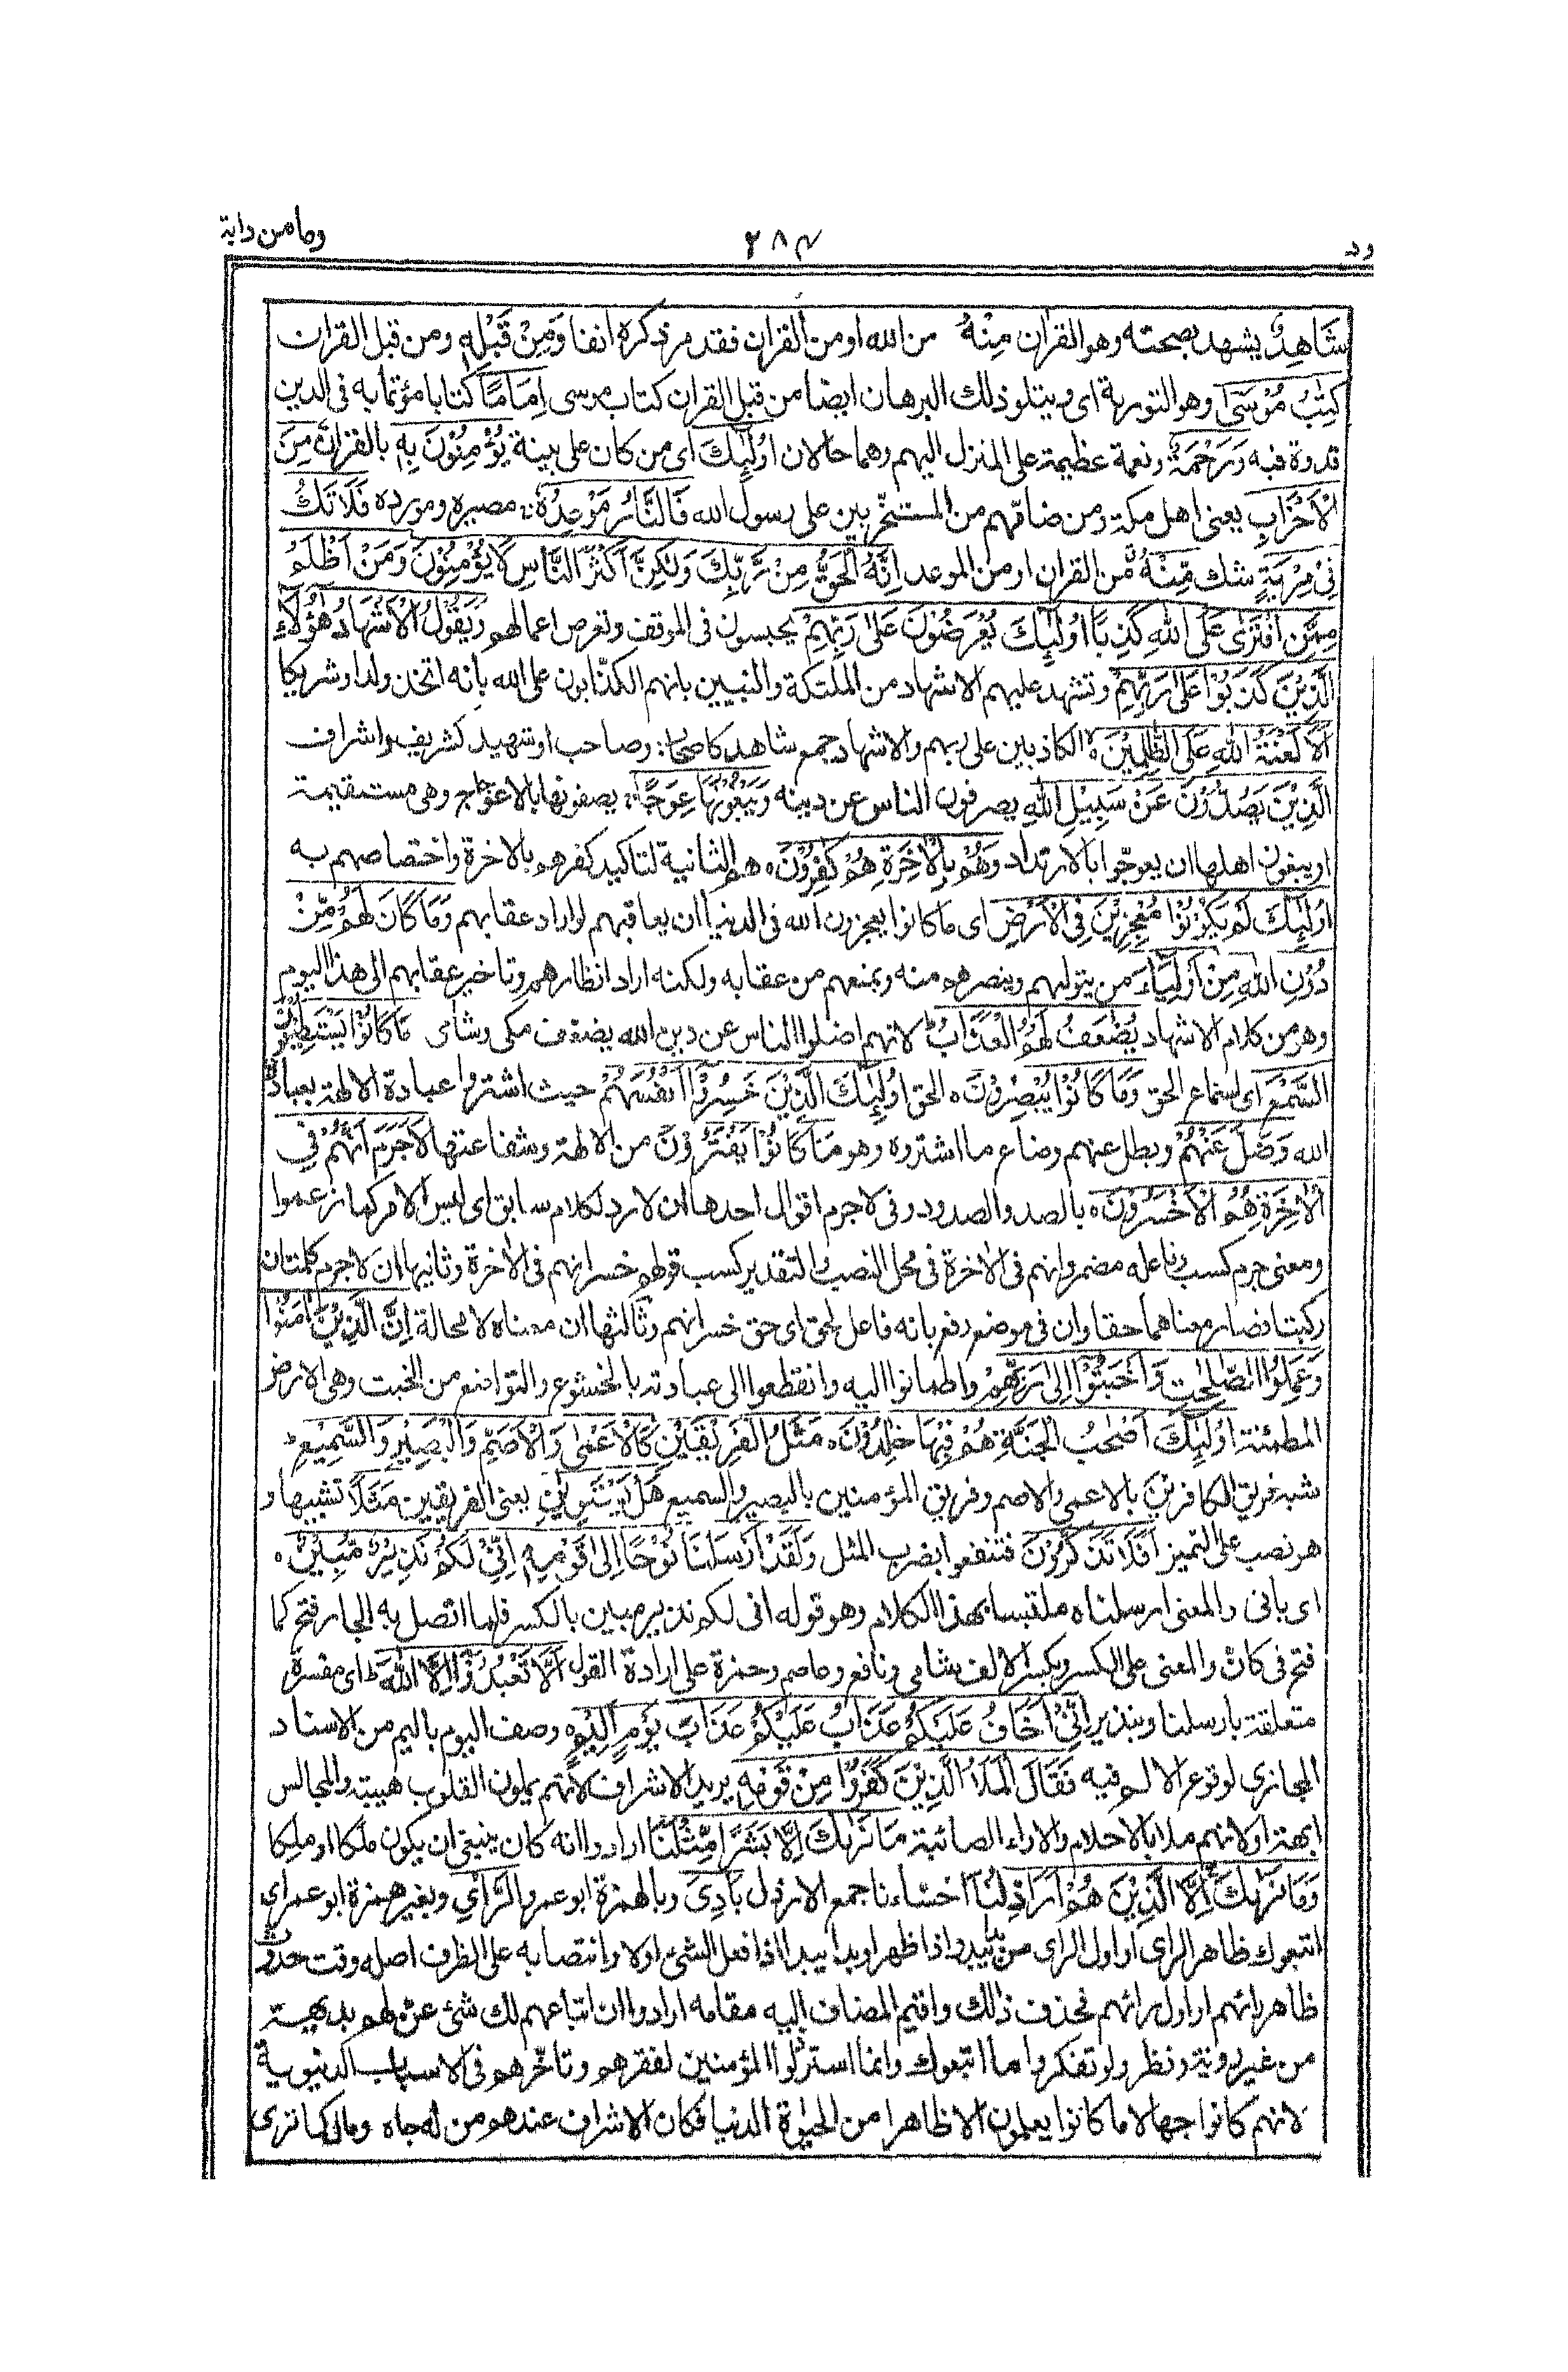 ود ٢٨٤ وما من دابة
شَاهِدٌ يشهد بصحته وهو القران مِنْهُ من الله او من القران فقد مر ذكره انفا وَمِنْ قَبْلِهٖ ومن قبل القران
كِتٰبُ مُوْسٰٓى وهو التورىة اى ويتلو ذلك البرهان ايضا من قبل القران كتاب موسى اِمَامًا كتابا مؤتمابه فى الدين
قدوة فيه وَرَحْمَةً ونعمة عظيمة على المنزل اليهم وهما حالان اُولٰٓئِكَ اى من كان على بينة يُؤْمِنُوْنَ بِهٖ بالقران وَمَنْ يَّكْفُرْ بِهٖ مِنَ
الْاَحْزَابِ يعنى اهل مكة ومن ضامّهم من المتحزّبين على رسول الله فَالنَّارُ مَوْعِدُهٗ مصيره ومورده فَلَا تَكُ
فِىْ مِرْيَةٍ شك مِّنْهُ من القران او من الموعد اِنَّهُ الْحَقُّ مِنْ رَّبِّكَ وَلٰكِنَّ اَكْثَرَ النَّاسِ لَا يُؤْمِنُوْنَ وَمَنْ اَظْلَمُ
مِمَّنِ افْتَرٰى عَلَى اللّٰهِ كَذِبًا اُولٰٓئِكَ يُعْرَضُوْنَ عَلٰى رَبِّهِمْ يحبسون فى الموقف وتعرض اعمالهم وَيَقُوْلُ الْاَشْهَادُ هٰٓؤُلَآءِ
الَّذِيْنَ كَذَبُوْا عَلٰى رَبِّهِمْ وتشهد عليهم الاشهاد من الملٰئكة والنبيين بانهم الكذّابون على الله بانه اتخذ ولدا وشريكا
اَلَا لَعْنَةُ اللّٰهِ عَلَى الظّٰلِمِيْنَ ه الكاذبين على ربهم والاشهاد جمع شاهد كاصحاب وصاحب او شهيد كشريف واشراف
الَّذِيْنَ يَصُدُّوْنَ عَنْ سَبِيْلِ اللّٰهِ يصرفون الناس عن دينه وَيَبْغُوْنَهَا عِوَجًا يصفونها بالاعوجاج وهى مستقيمة
او يبغون اهلها ان يعوجّوا بالارتداد وَهُمْ بِالْاٰخِرَةِ هُمْ كٰفِرُوْنَ ه هم الثانية لتاكيد كفرهم بالاخرة واختصاصهم به
اُولٰٓئِكَ لَمْ يَكُوْنُوْا مُعْجِزِيْنَ فِى الْاَرْضِ اى ما كانوا يعجزون الله فى الدنيا ان يعاقبهم لو اراد عقابهم وَمَا كَانَ لَهُمْ مِّنْ
دُوْنِ اللّٰهِ مِنْ اَوْلِيَآءَ من يتولهم وينصرهم منه ويمنعهم من عقابه ولكنه اراد انظارهم وتاخير عقابهم الى هذا اليوم
وهو من كلام الاشهاد يُضٰعَفُ لَهُمُ الْعَذَابُ لانهم اضلوا الناس عن دين الله يضعف مكى وشامى مَا كَانُوْا يَسْتَطِيْعُوْنَ
السَّمْعَ اى استماع الحق وَمَا كَانُوْا يُبْصِرُوْنَ ه الحق اُولٰٓئِكَ الَّذِيْنَ خَسِرُوْٓا اَنْفُسَهُمْ حيث اشتروا عبادة الالهة بعبادة
الله وَضَلَّ عَنْهُمْ وبطل عنهم وضاع ما اشتروه وهو مَّا كَانُوْا يَفْتَرُوْنَ من الالهة وشفاعتها لَا جَرَمَ اَنَّهُمْ فِى
الْاٰخِرَةِ هُمُ الْاَخْسَرُوْنَ ه بالصد والصدود وفى لاجرم اقوال احدها ان لا رد لكلام سابق اى ليس الامر كما زعموا
ومعنى جرم كسب وفاعله مضمر وانهم فى الاخرة فى محل النصب والتقدير كسب قولهم خسرانهم فى الاخرة وثانيها ان لا جرم كلمتان
ركبتا فصار معناهما حقا وان فى موضع رفع بانه فاعل لحق اى حق خسرانهم وثالثها ان معناه لا محالة اِنَّ الَّذِيْنَ اٰمَنُوْا
وَعَمِلُوا الصّٰلِحٰتِ وَاَخْبَتُوْٓا اِلٰى رَبِّهِمْ واطمانوا اليه وانقطعوا الى عبادته بالخشوع والتواضع من الخبت وهى الارض
المطمئنة اُولٰٓئِكَ اَصْحٰبُ الْجَنَّةِ هُمْ فِيْهَا خٰلِدُوْنَ ه مَثَلُ الْفَرِيْقَيْنِ كَالْاَعْمٰى وَالْاَصَمِّ وَالْبَصِيْرِ وَالسَّمِيْعِ
شبه فريق الكافرين بالاعمى والاصم وفريق المؤمنين بالبصير والسميع هَلْ يَسْتَوِيٰنِ يعنى الفريقين مَثَلًا تشبيها و
هو نصب على التميز اَفَلَا تَذَكَّرُوْنَ فتنتفعوا بضرب المثل وَلَقَدْ اَرْسَلْنَا نُوْحًا اِلٰى قَوْمِهٖٓ اِنِّىْ لَكُمْ نَذِيْرٌ مُّبِيْنٌ ه
اى بانى والمعنى ارسلناه ملتبسا بهذا الكلام وهو قوله انى لكم نذير مبين بالكسر فلما اتصل به الجار فتح كما
فتح فى كان والمعنى على الكسر وبكسر الالف شامى ونافع وعاصم وحمزة على ارادة القول اَنْ لَّا تَعْبُدُوْٓا اِلَّا اللّٰهَ ط اى مفسرة
متعلقة بارسلنا وبنذير اِنِّىْٓ اَخَافُ عَلَيْكُمْ عَذَابَ عَلَيْكُمْ عَذَابَ يَوْمٍ اَلِيْمٍ ه وصف اليوم باليم من الاسناد
المجازى لوقوع الالم فيه فَقَالَ الْمَلَاُ الَّذِيْنَ كَفَرُوْا مِنْ قَوْمِهٖ يريد الاشراف لانهم يملون القلوب هيبة والمجالس
ابهة او لانهم ملا بالاحلام والاراء الصائبة مَا نَرٰىكَ اِلَّا بَشَرًا مِّثْلَنَا ارادوا انه كان ينبغى ان يكون ملكا او ملكا
وَمَا نَرٰىكَ اتَّبَعَكَ اِلَّا الَّذِيْنَ هُمْ اَرَاذِلُنَا اخساءنا جمع الارذل بَادِىَ وبالهمزة ابو عمرو الرَّاْىِ وبغير همزة ابو عمرو اى
اتبعوك ظاهر الراى او اول الراى من بدا يبدو اذا ظهر او بدا يبدا اذا فعل الشئ اولا وانتصابه على الظرف اصله وقت حدوث
ظاهر رائهم او اول رائهم فحذف ذلك واقيم المضاف اليه مقامه ارادوا ان اتباعهم لك شئ عنّ لهم بديهة
من غير روية ونظر ولو تفكروا ما اتبعوك وانما استرذلوا المؤمنين لفقرهم وتاخّرهم فى الاسباب الدنيوية
لانهم كانوا جهالا ما كانوا يعلمون الا ظاهرا من الحيٰوة الدنيا فكان الاشراف عندهم من له جاه ومال كما ترى